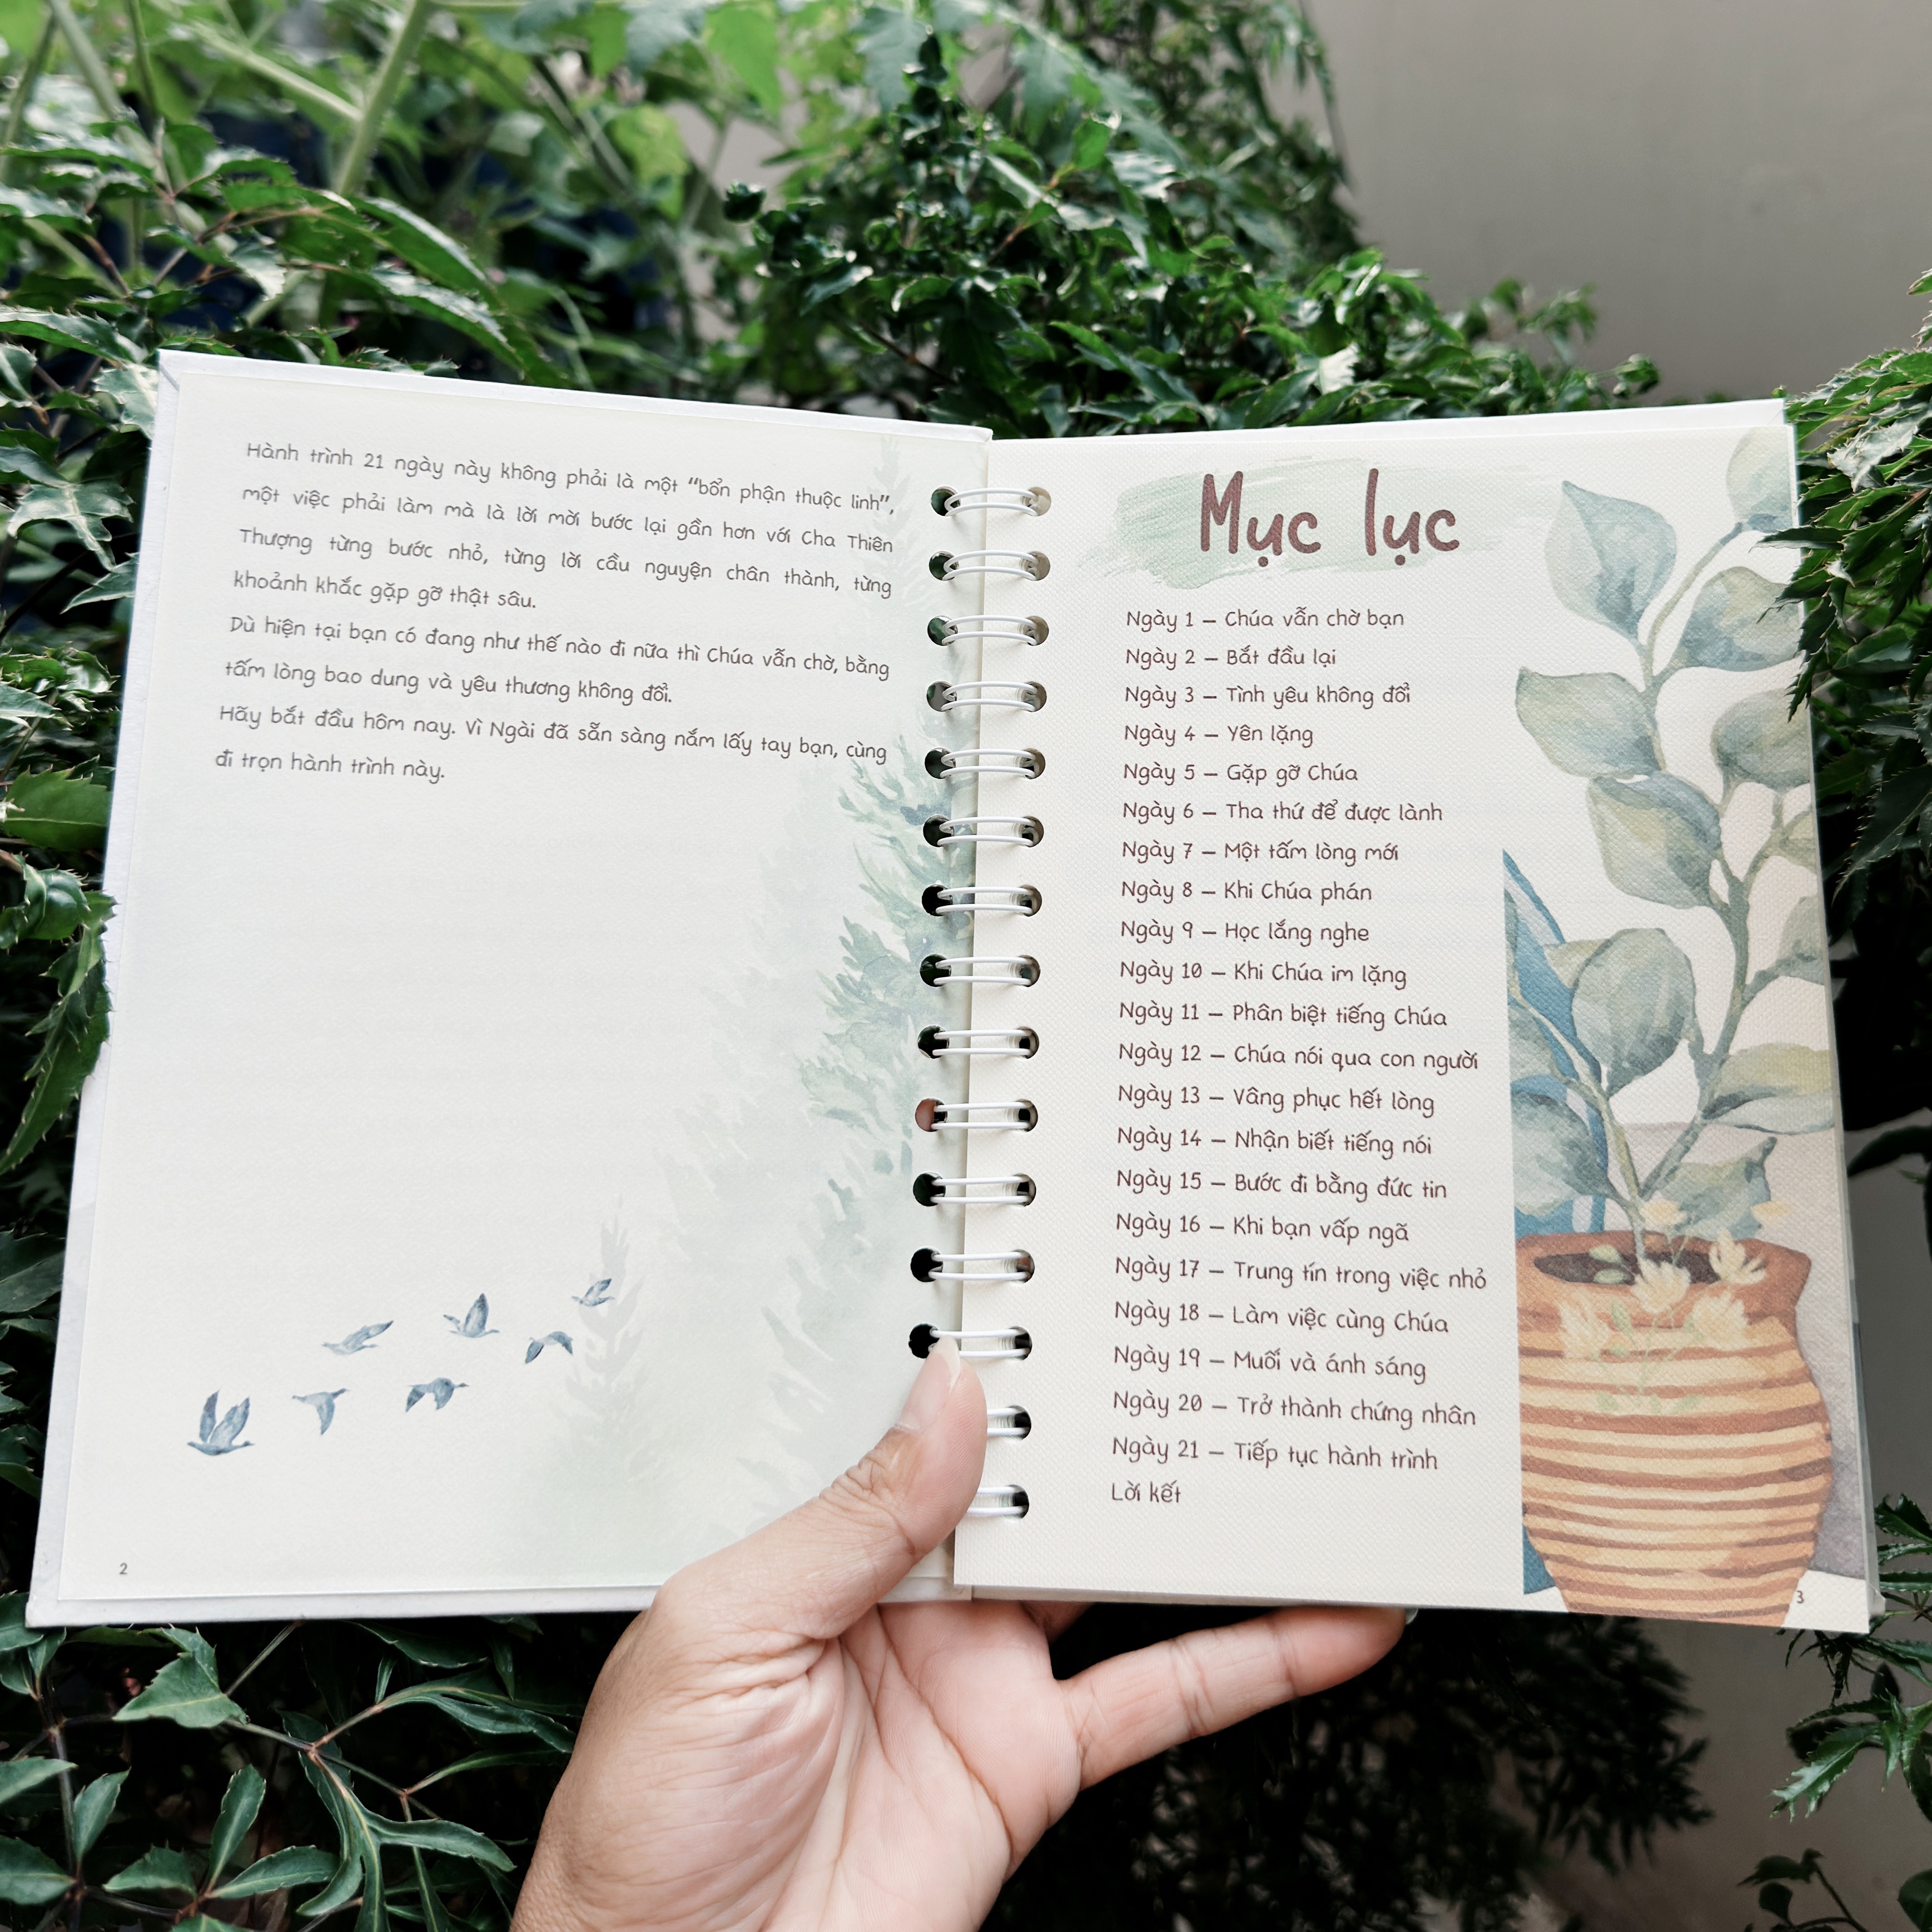 Hành trình 21 ngày này không phải là một “bổn phận thuộc linh”,
một việc phải làm mà là lời mời bước lại gần hơn với Cha Thiên
Thượng từng bước nhỏ, từng lời cầu nguyện chân thành, từng
khoảnh khắc gặp gỡ thật sâu.
Dù hiện tại bạn có đang như thế nào đi nữa thì Chúa vẫn chờ, bằng
tấm lòng bao dung và yêu thương không đổi.
Hãy bắt đầu hôm nay. Vì Ngài đã sẵn sàng nắm lấy tay bạn, cùng
đi trọn hành trình này.
2
Mục lục
Ngày 1 – Chúa vẫn chờ bạn
Ngày 2 – Bắt đầu lại
Ngày 3 – Tình yêu không đổi
Ngày 4 – Yên lặng
Ngày 5 – Gặp gỡ Chúa
Ngày 6 – Tha thứ để được lành
Ngày 7 – Một tấm lòng mới
Ngày 8 – Khi Chúa phán
Ngày 9 – Học lắng nghe
Ngày 10 – Khi Chúa im lặng
Ngày 11 – Phân biệt tiếng Chúa
Ngày 12 – Chúa nói qua con người
Ngày 13 – Vâng phục hết lòng
Ngày 14 – Nhận biết tiếng nói
Ngày 15 – Bước đi bằng đức tin
Ngày 16 – Khi bạn vấp ngã
Ngày 17 – Trung tín trong việc nhỏ
Ngày 18 – Làm việc cùng Chúa
Ngày 19 – Muối và ánh sáng
Ngày 20 – Trở thành chứng nhân
Ngày 21 – Tiếp tục hành trình
Lời kết
3